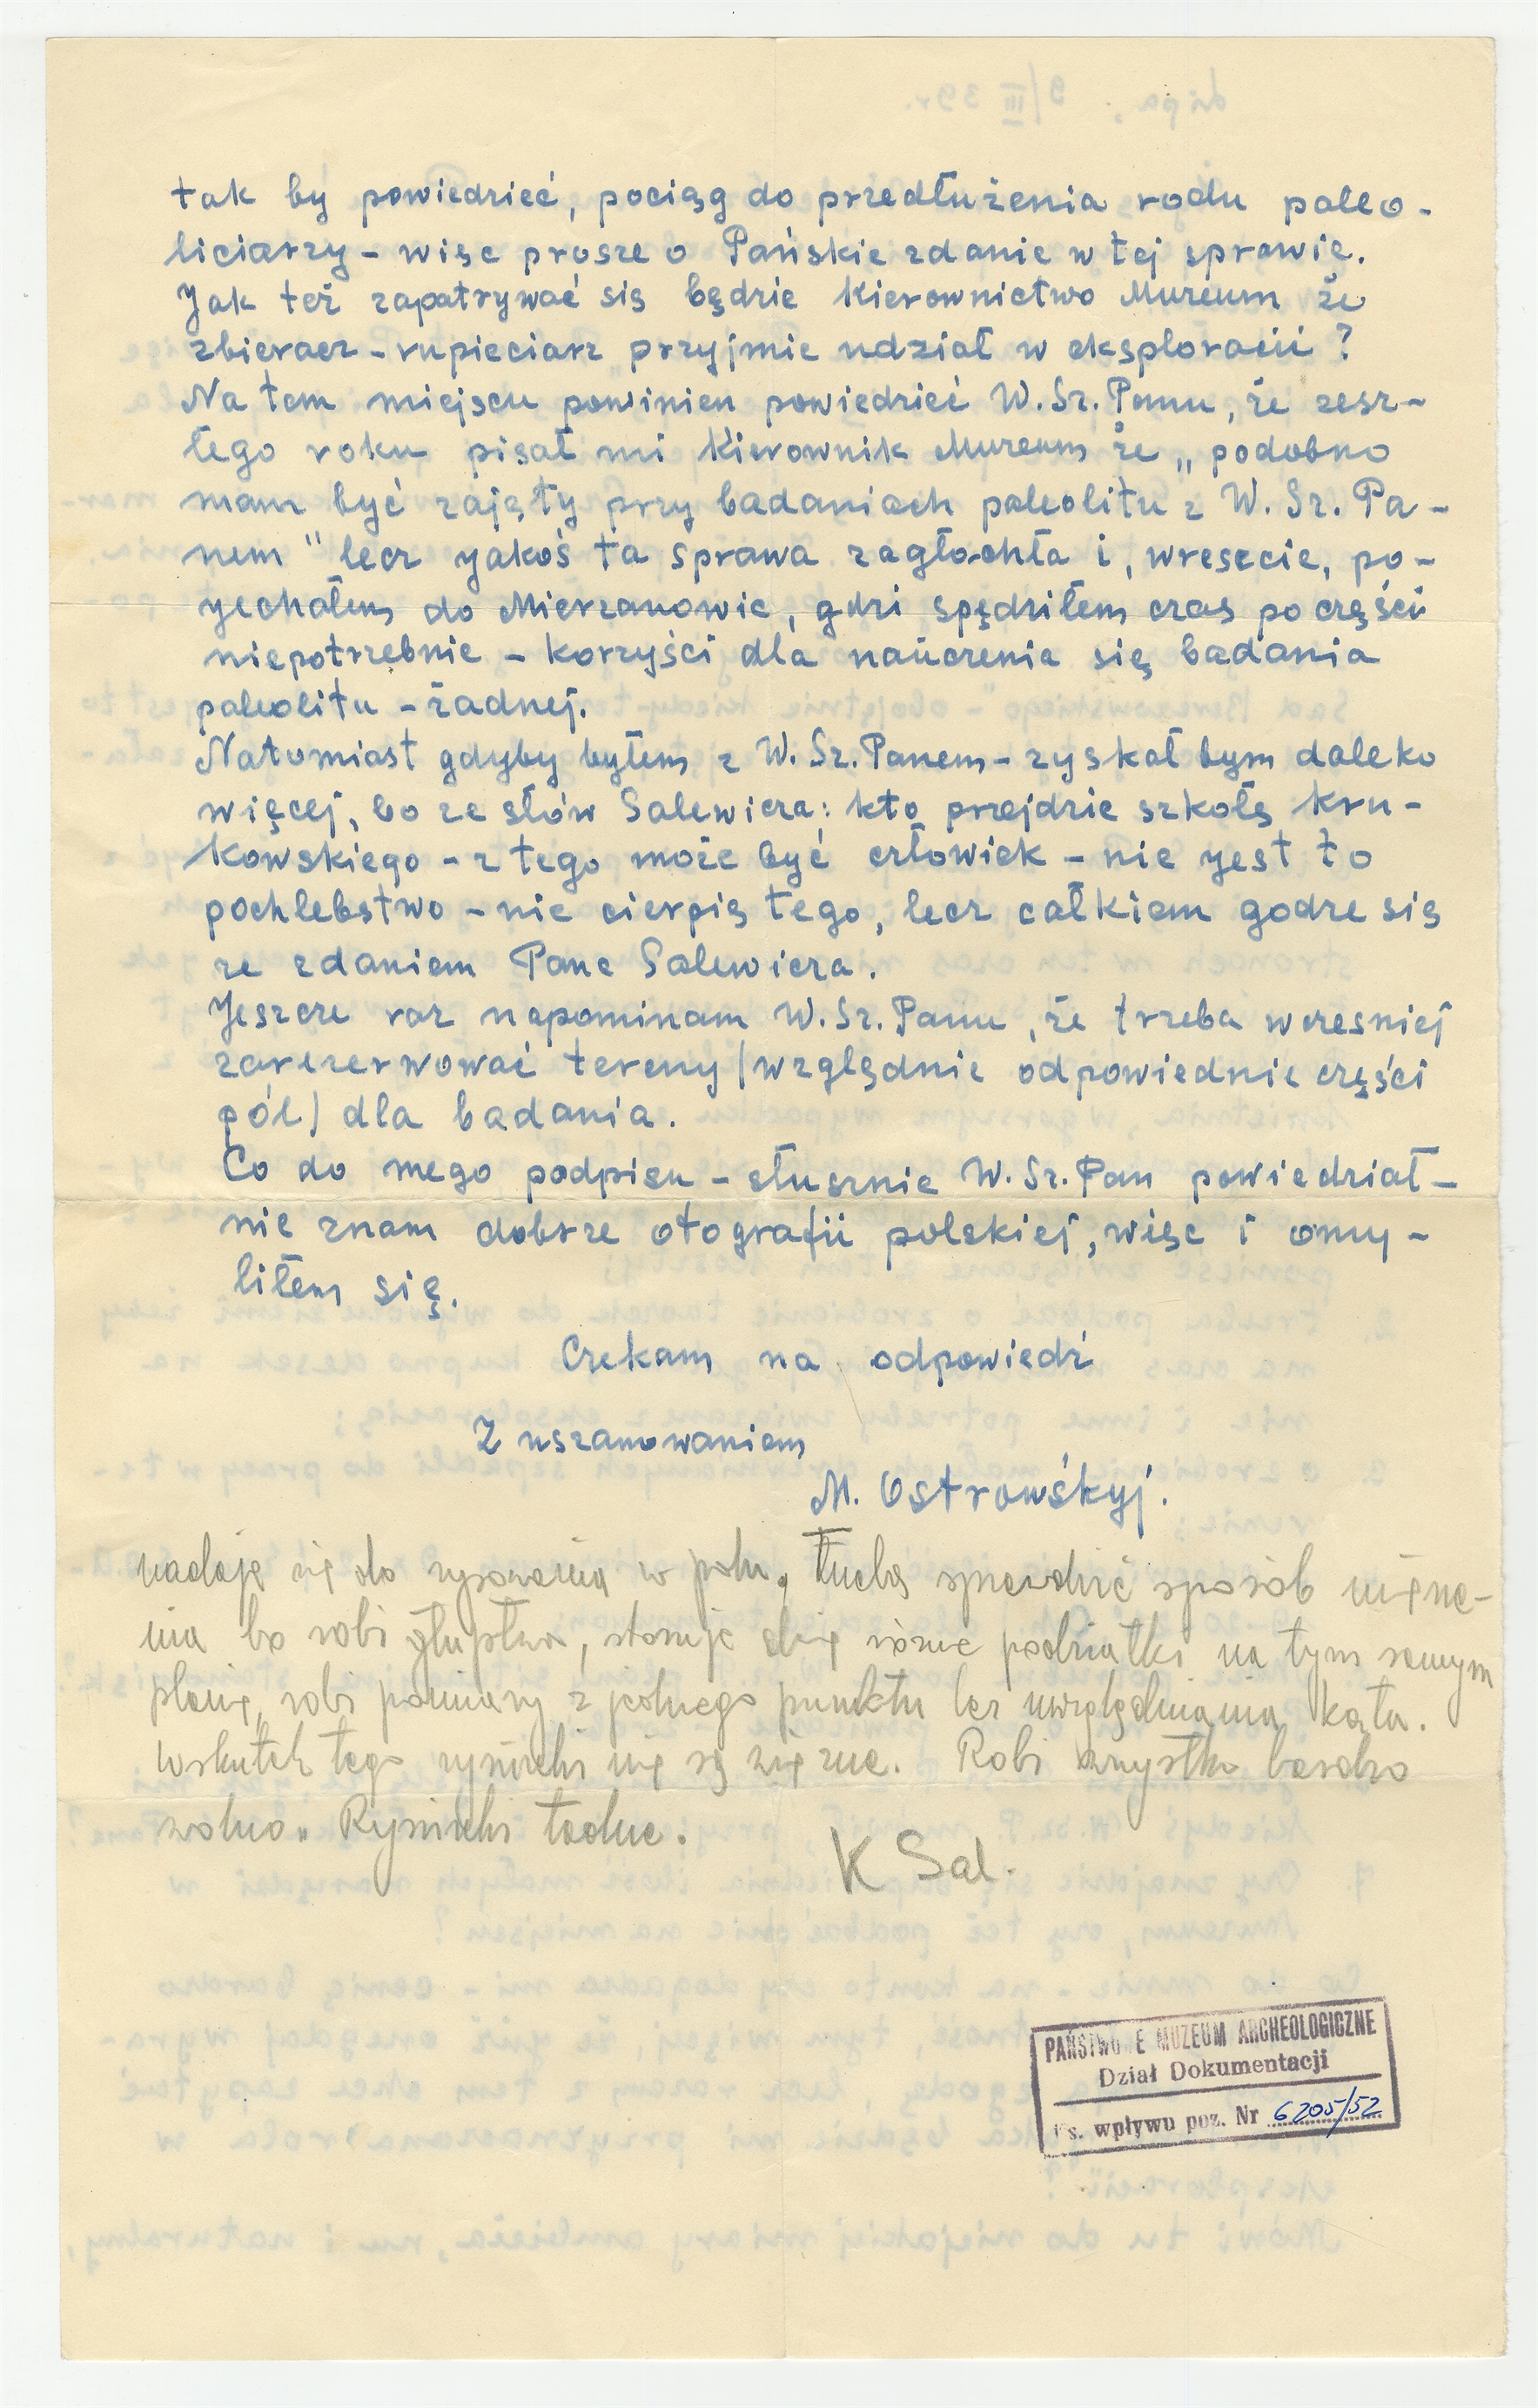 tak by powiedzieć, pociąg do przedłużenia rodu paleo-
liciarzy - więc prosze o Pańskie zdanie w tej sprawie.
Jak też zapatrywać się będzie Kierownictwo Muzeum że
zbieracz - rupieciarz przyjmie udział w eksploracii ?
Na tem miejscu powinien powiedzieć W. Sz. Panu, że zesz-
łego roku pisał mi Kierownik Muzeum że „ podobno
mam być zajęty przy badaniach paleolitu z W. Sz. Pa-
nem " lecz yakoś ta sprawa zagłochła i, wresecie, po-
yechałem do Mierzanowic, gdzi spędziłem czas po części
niepotrzebnie - korzyści dla nauczenia się badania
paleolitu - żadnej.
Natomiast gdyby byłem z W. Sz. Panem - zyskał bym daleko
więcej, bo ze słów Salewicza: kto przejdzie szkołę Kru-
kowskiego - z tego może być człowiek - nie yest to
pochlebstwo - nie cierpię tego, lecz całkiem godze się
ze zdaniem Pane Salewicza.
Jeszcze raz napominam W. Sz. Panu, że trzeba wczesniej
zarezerwować tereny /względnie odpowiednie części
pól/ dla badania.
Co do mego podpisu - słusznie W. Sz. Pan powiedział -
nie znam dobrze otografii polskiej, więc i omy-
liłem się.
Czekam na odpowiedź
Z uszanowaniem
M. Ostrowśkyj.
nadaje się do rysowania w polu, Trzeba sprawdzić sposób
bo robi głupstwa, stosuje różne podziałki na tym samym
planie, robi pomiary z jednego punktu bez uwzględniania kąta.
Wskutek tego rysunki nie są Robi wszystko bardzo
wolno. Rysunki ładne.
K Sal.
PAŃSTWOWE MUZEUM ARCHEOLOGICZNE
Dział Dokumentacji
Ks. wpływu poz. Nr 6205/52